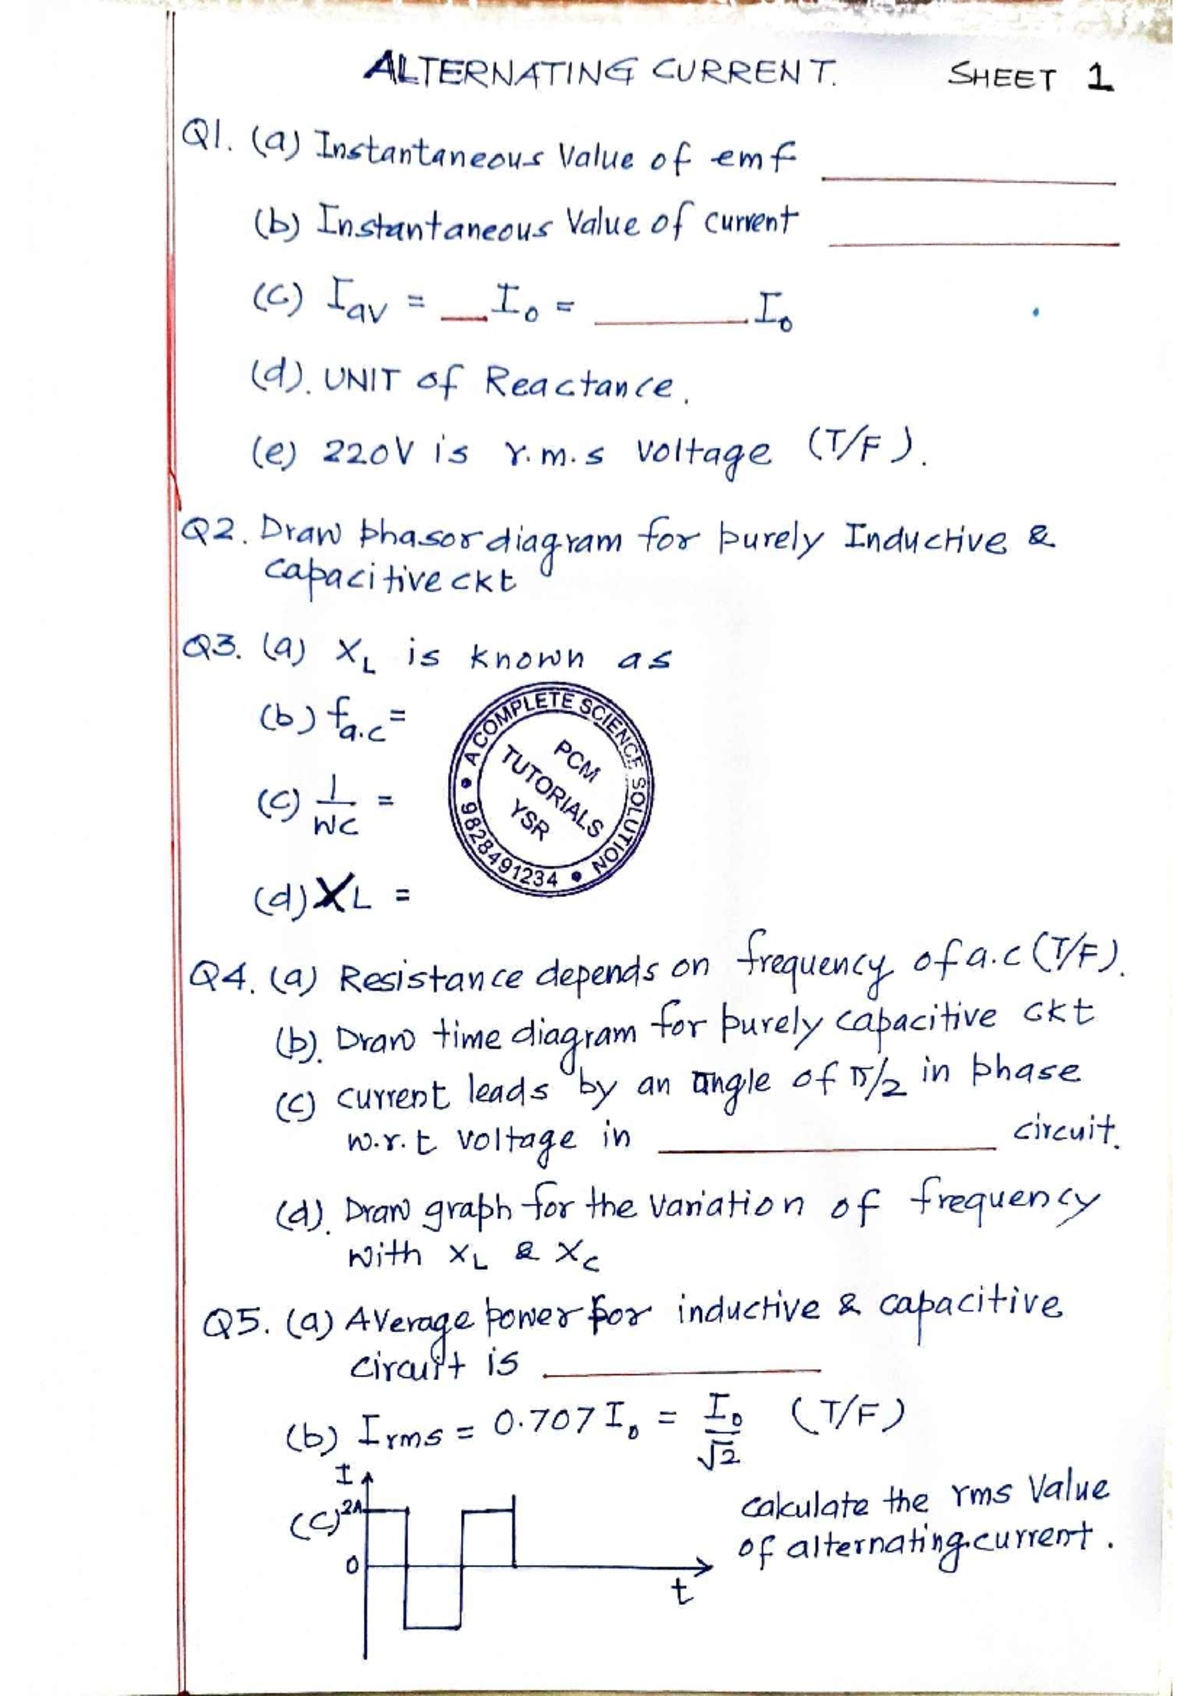 ALTERNATING CURRENT. SHEET 1
Q1. (a) Instantaneous Value of emf ________
(b) Instantaneous Value of current ________
(c) Iav = __ I₀ = ______ I₀
(d). UNIT of Reactance.
(e) 220V is r.m.s voltage (T/F).
Q2. Draw phasor diagram for purely Inductive &
capacitive ckt
Q3. (a) XL is known as
(b) fa.c =
(c) 1/WC =
(d) XL =
A COMPLETE SCIENCE SOLUTION
PCM
TUTORIALS
YSR
9828491234
Q4. (a) Resistance depends on frequency of a.c (T/F).
(b). Draw time diagram for purely capacitive ckt
(c) current leads by an angle of π/2 in phase
w.r.t voltage in ________ circuit.
(d). Draw graph for the variation of frequency
with XL & Xc
Q5. (a) Average power for inductive & capacitive
circuit is ________
(b) Irms = 0.707 I₀ = I₀/√2 (T/F)
I
(c) 2A
0
t
calculate the rms value
of alternating current.